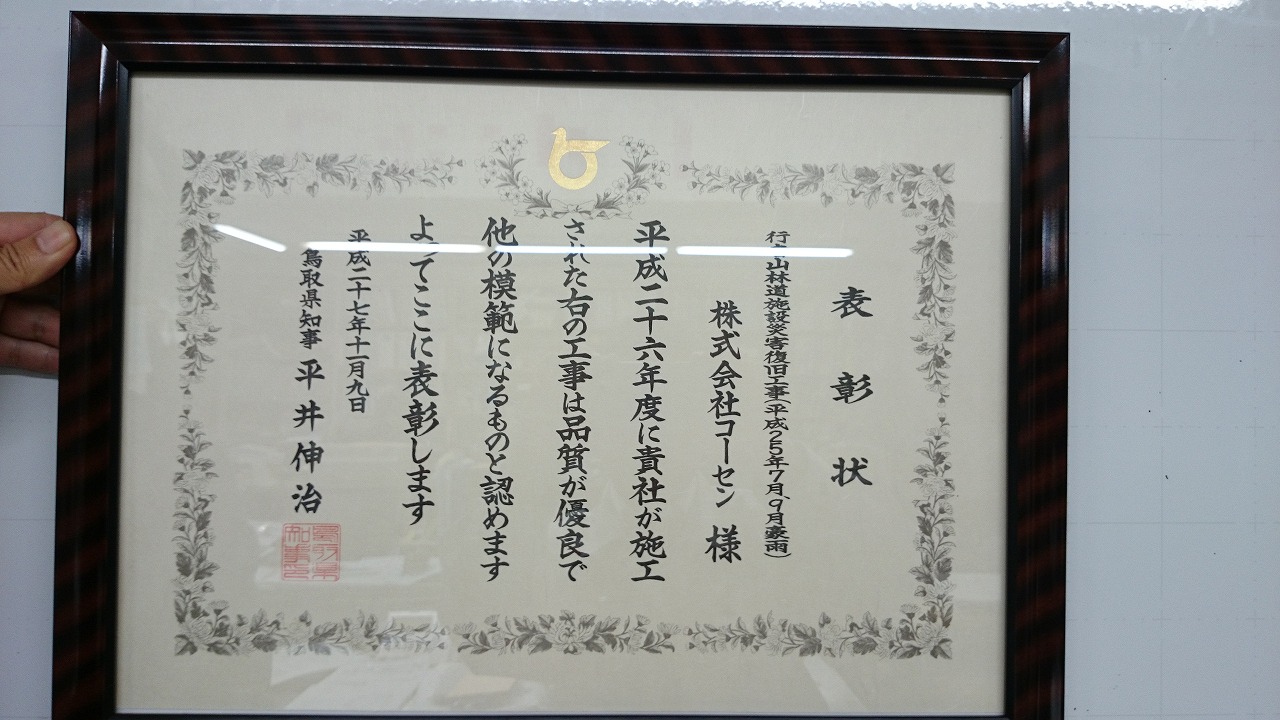 表彰状
行者山林道施設災害復旧工事(平成25年7月、9月豪雨)
株式会社コーセン 様
平成二十六年度に貴社が施工
された右の工事は品質が優良で
他の模範になるものと認めます
よってここに表彰します
平成二十七年十一月九日
鳥取県知事 平井伸治